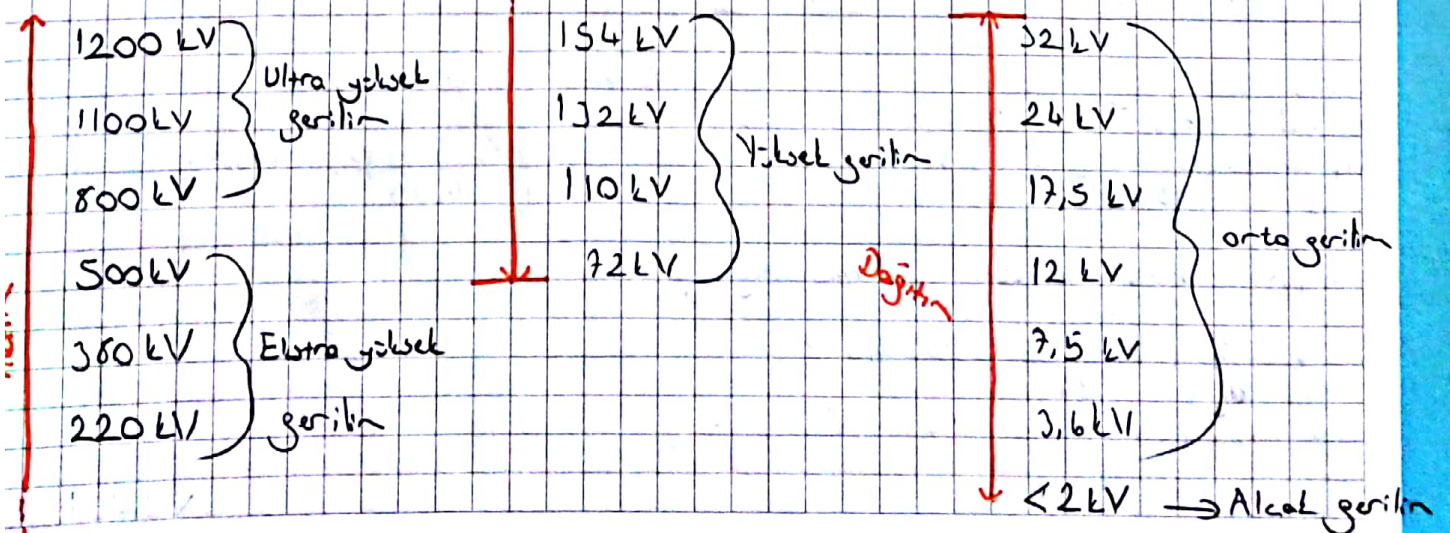 1200 kV
1100 kV
800 kV
Ultra yüksek
gerilim
500 kV
380 kV
220 kV
Ekstra yüksek
gerilim
154 kV
132 kV
110 kV
72 kV
Yüksek gerilim
Dağıtım
32 kV
24 kV
17,5 kV
12 kV
7,5 kV
3,6 kV
orta gerilim
<2 kV → Alçak gerilim